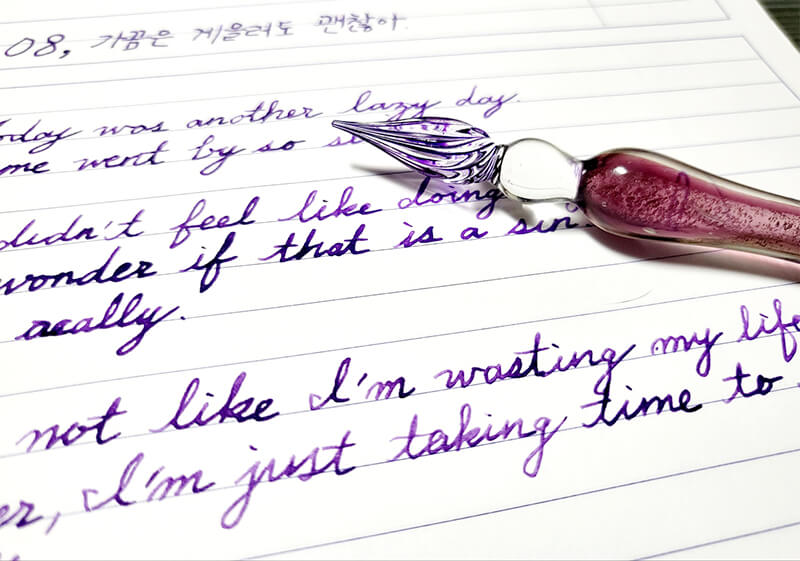 08, 가끔은 게을러도 괜찮아.
oday was another lazy day.
me went by so
didn't feel like doing
wonder if that is a sin.
really.
not like I'm wasting my life
er, I'm just taking time to